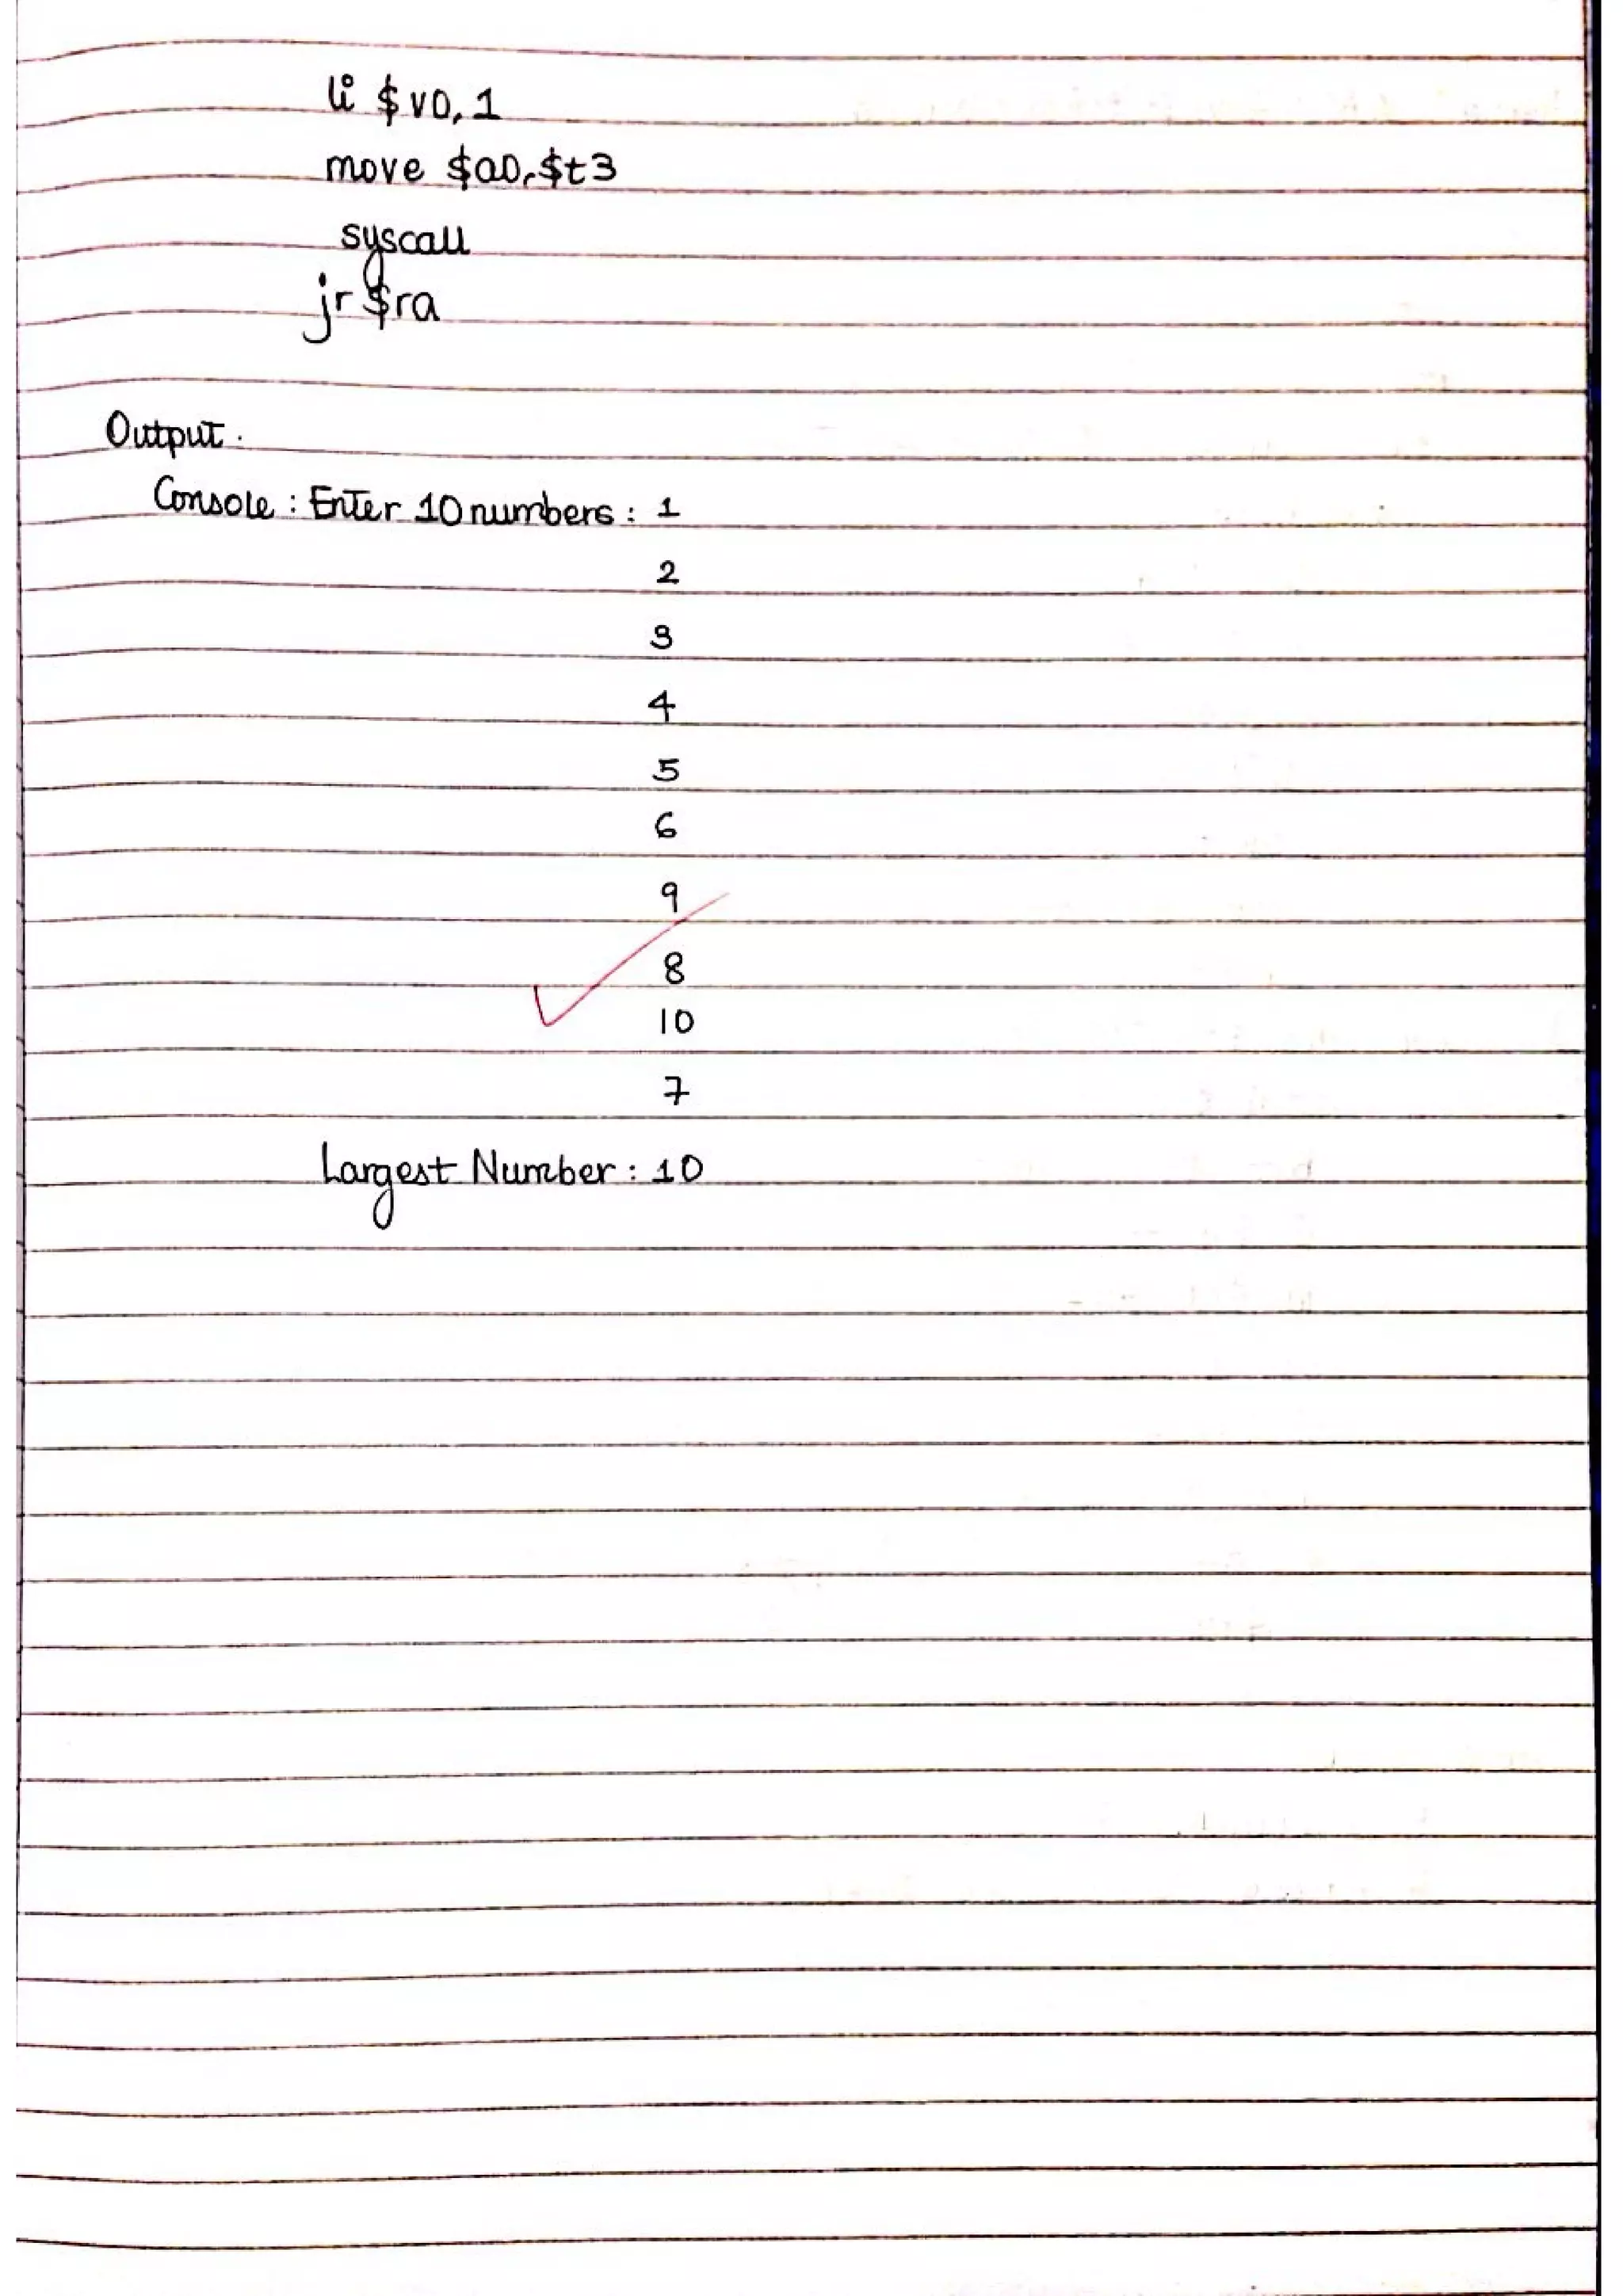 li $v0, 1
move $a0, $t3
syscall
jr $ra
Output.
Console : Enter 10 numbers : 1
2
3
4
5
6
9
8
10
7
Largest Number : 10